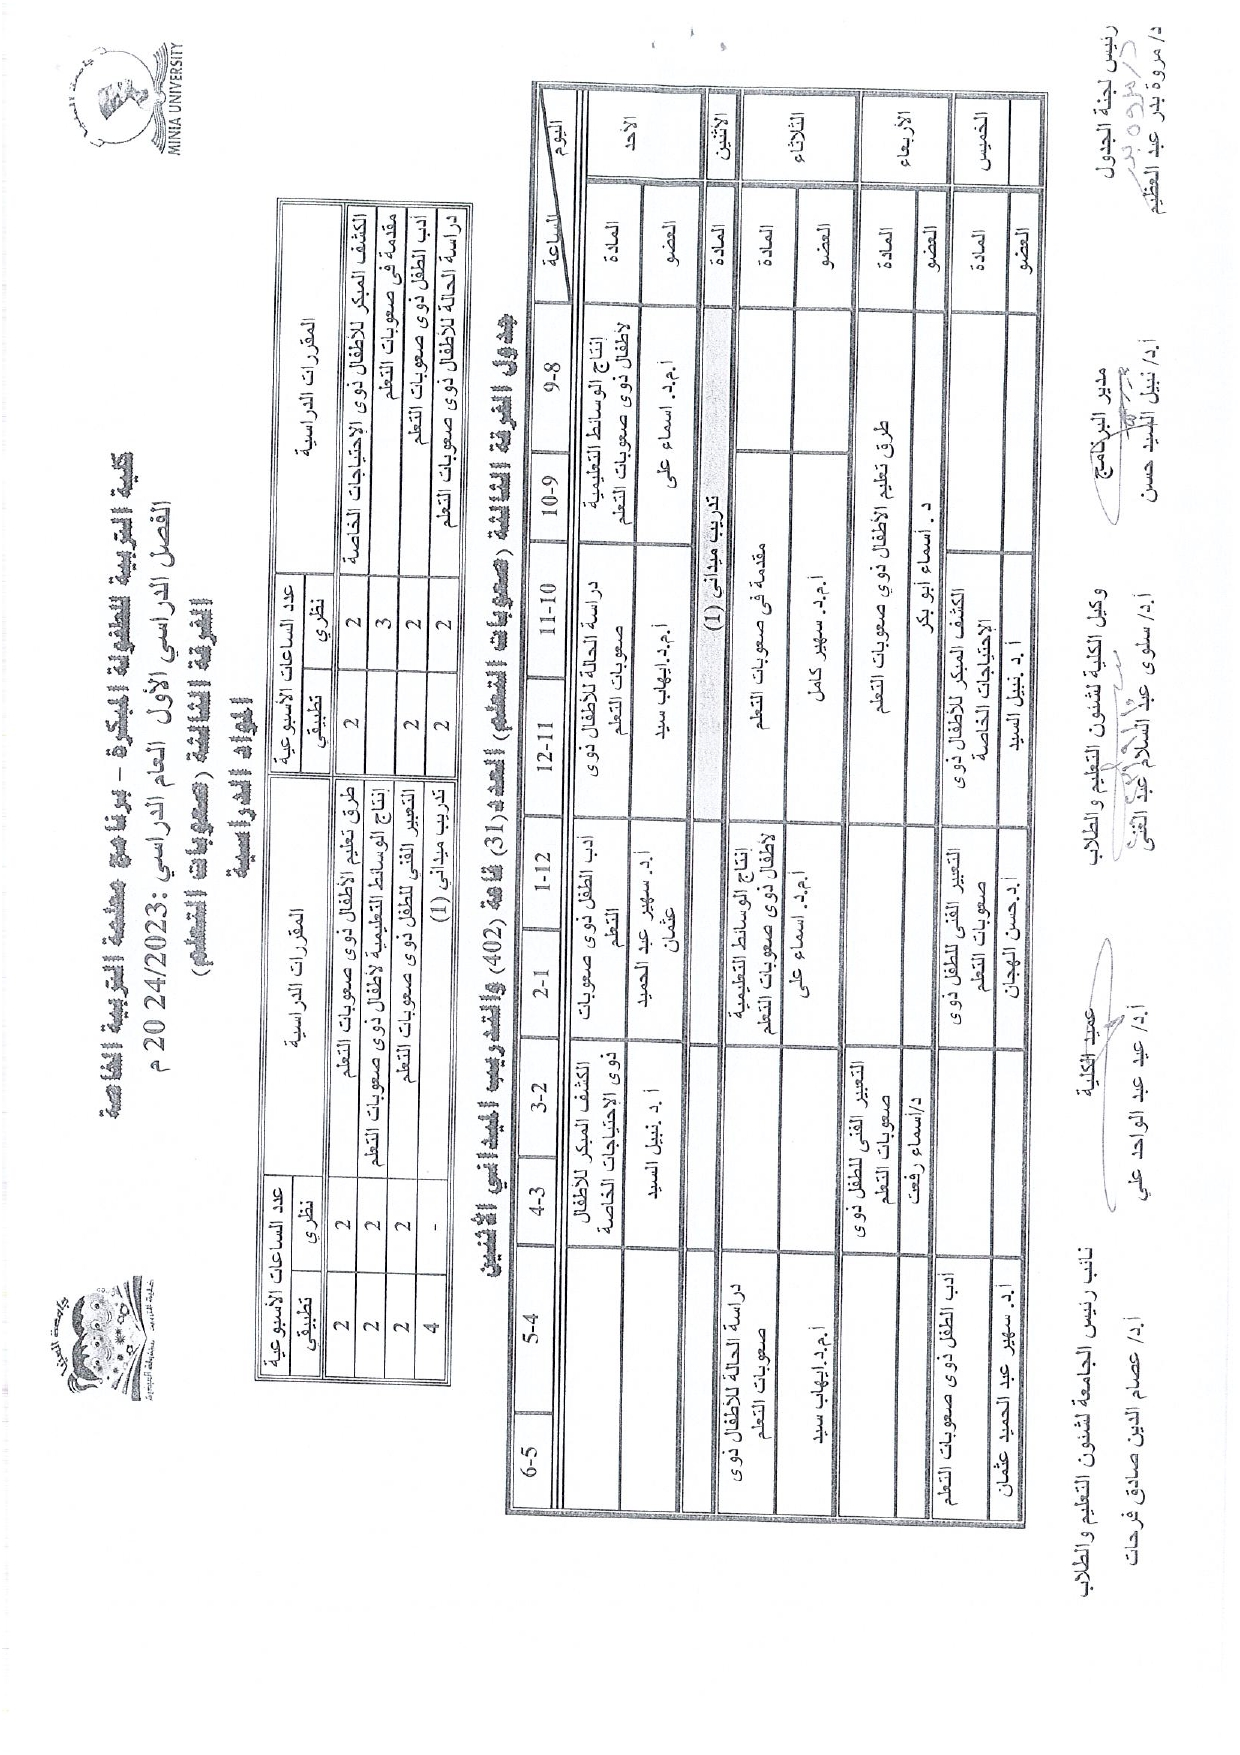 جامعة المنيا
MINIA UNIVERSITY
كلية التربية للطفولة المبكرة – برنامج معلمة التربية الخاصة
الفصل الدراسي الأول العام الدراسي :24/2023 20 م
الفرقة الثالثة (صعوبات التعلم)
المواد الدراسية
المقررات الدراسية | عدد الساعات الأسبوعية | المقررات الدراسية | عدد الساعات الأسبوعية
نظري | تطبيقي | نظري | تطبيقي
الكشف المبكر للأطفال ذوى الإحتياجات الخاصة | 2 | 2 | طرق تعليم الأطفال ذوى صعوبات التعلم | 2 | 2
مقدمة فى صعوبات التعلم | 3 | | إنتاج الوسائط التعليمية لأطفال ذوى صعوبات التعلم | 2 | 2
أدب الطفل ذوى صعوبات التعلم | 2 | 2 | التعبير الفنى للطفل ذوى صعوبات التعلم | 2 | 2
دراسة الحالة للأطفال ذوى صعوبات التعلم | 2 | 2 | تدريب ميداني (1) | - | 4
جدول الفرقة الثالثة (صعوبات التعلم) العدد(31) قاعة (402) والتدريب الميداني الأثنين
اليوم | الساعة | 9-8 | 10-9 | 11-10 | 12-11 | 1-12 | 2-1 | 3-2 | 4-3 | 5-4 | 6-5
الأحد | المادة | إنتاج الوسائط التعليمية لأطفال ذوى صعوبات التعلم | دراسة الحالة للأطفال ذوى صعوبات التعلم | أدب الطفل ذوى صعوبات التعلم | الكشف المبكر للأطفال ذوى الإحتياجات الخاصة
العضو | أ.م.د. اسماء على | أ.م.د.ايهاب سيد | أ.د. سهير عبد الحميد عثمان | أ.د. نبيل السيد
الأثنين | المادة | تدريب ميدانى (1)
الثلاثاء | المادة | مقدمة فى صعوبات التعلم | إنتاج الوسائط التعليمية لأطفال ذوى صعوبات التعلم | دراسة الحالة للأطفال ذوى صعوبات التعلم
العضو | أ.م.د. سهير كامل | أ.م.د. اسماء على | أ.م.د.ايهاب سيد
الأربعاء | المادة | طرق تعليم الأطفال ذوي صعوبات التعلم | التعبير الفنى للطفل ذوى صعوبات التعلم
العضو | د. أسماء أبو بكر | د/أسماء رفعت
الخميس | المادة | الكشف المبكر للأطفال ذوى الإحتياجات الخاصة | التعبير الفنى للطفل ذوى صعوبات التعلم | أدب الطفل ذوى صعوبات التعلم
العضو | أ.د. نبيل السيد | أ.د.حسن الهجان | أ.د. سهير عبد الحميد عثمان
رئيس لجنة الجدول | مدير البرنامج | وكيل الكلية لشئون التعليم والطلاب | عميد الكلية | نائب رئيس الجامعة لشئون التعليم والطلاب
د/ مروة بدر
د/ مروة بدر عبد العظيم | أ.د/ نبيل السيد حسن | أ.د/ سلوى عبد السلام عبد الغنى | أ.د/ عيد عبد الواحد علي | أ.د/ عصام الدين صادق فرحات